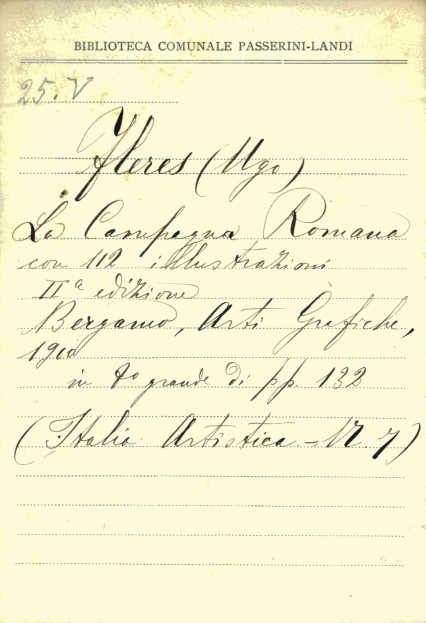 BIBLIOTECA COMUNALE PASSERINI-LANDI
25. V
Fleres (Ugo)
La Campagna Romana
con 112 illustrazioni
IIª edizione
Bergamo, Arti Grafiche,
1910
in 8º grande di pp. 132
(Italia Artistica - N. 7)